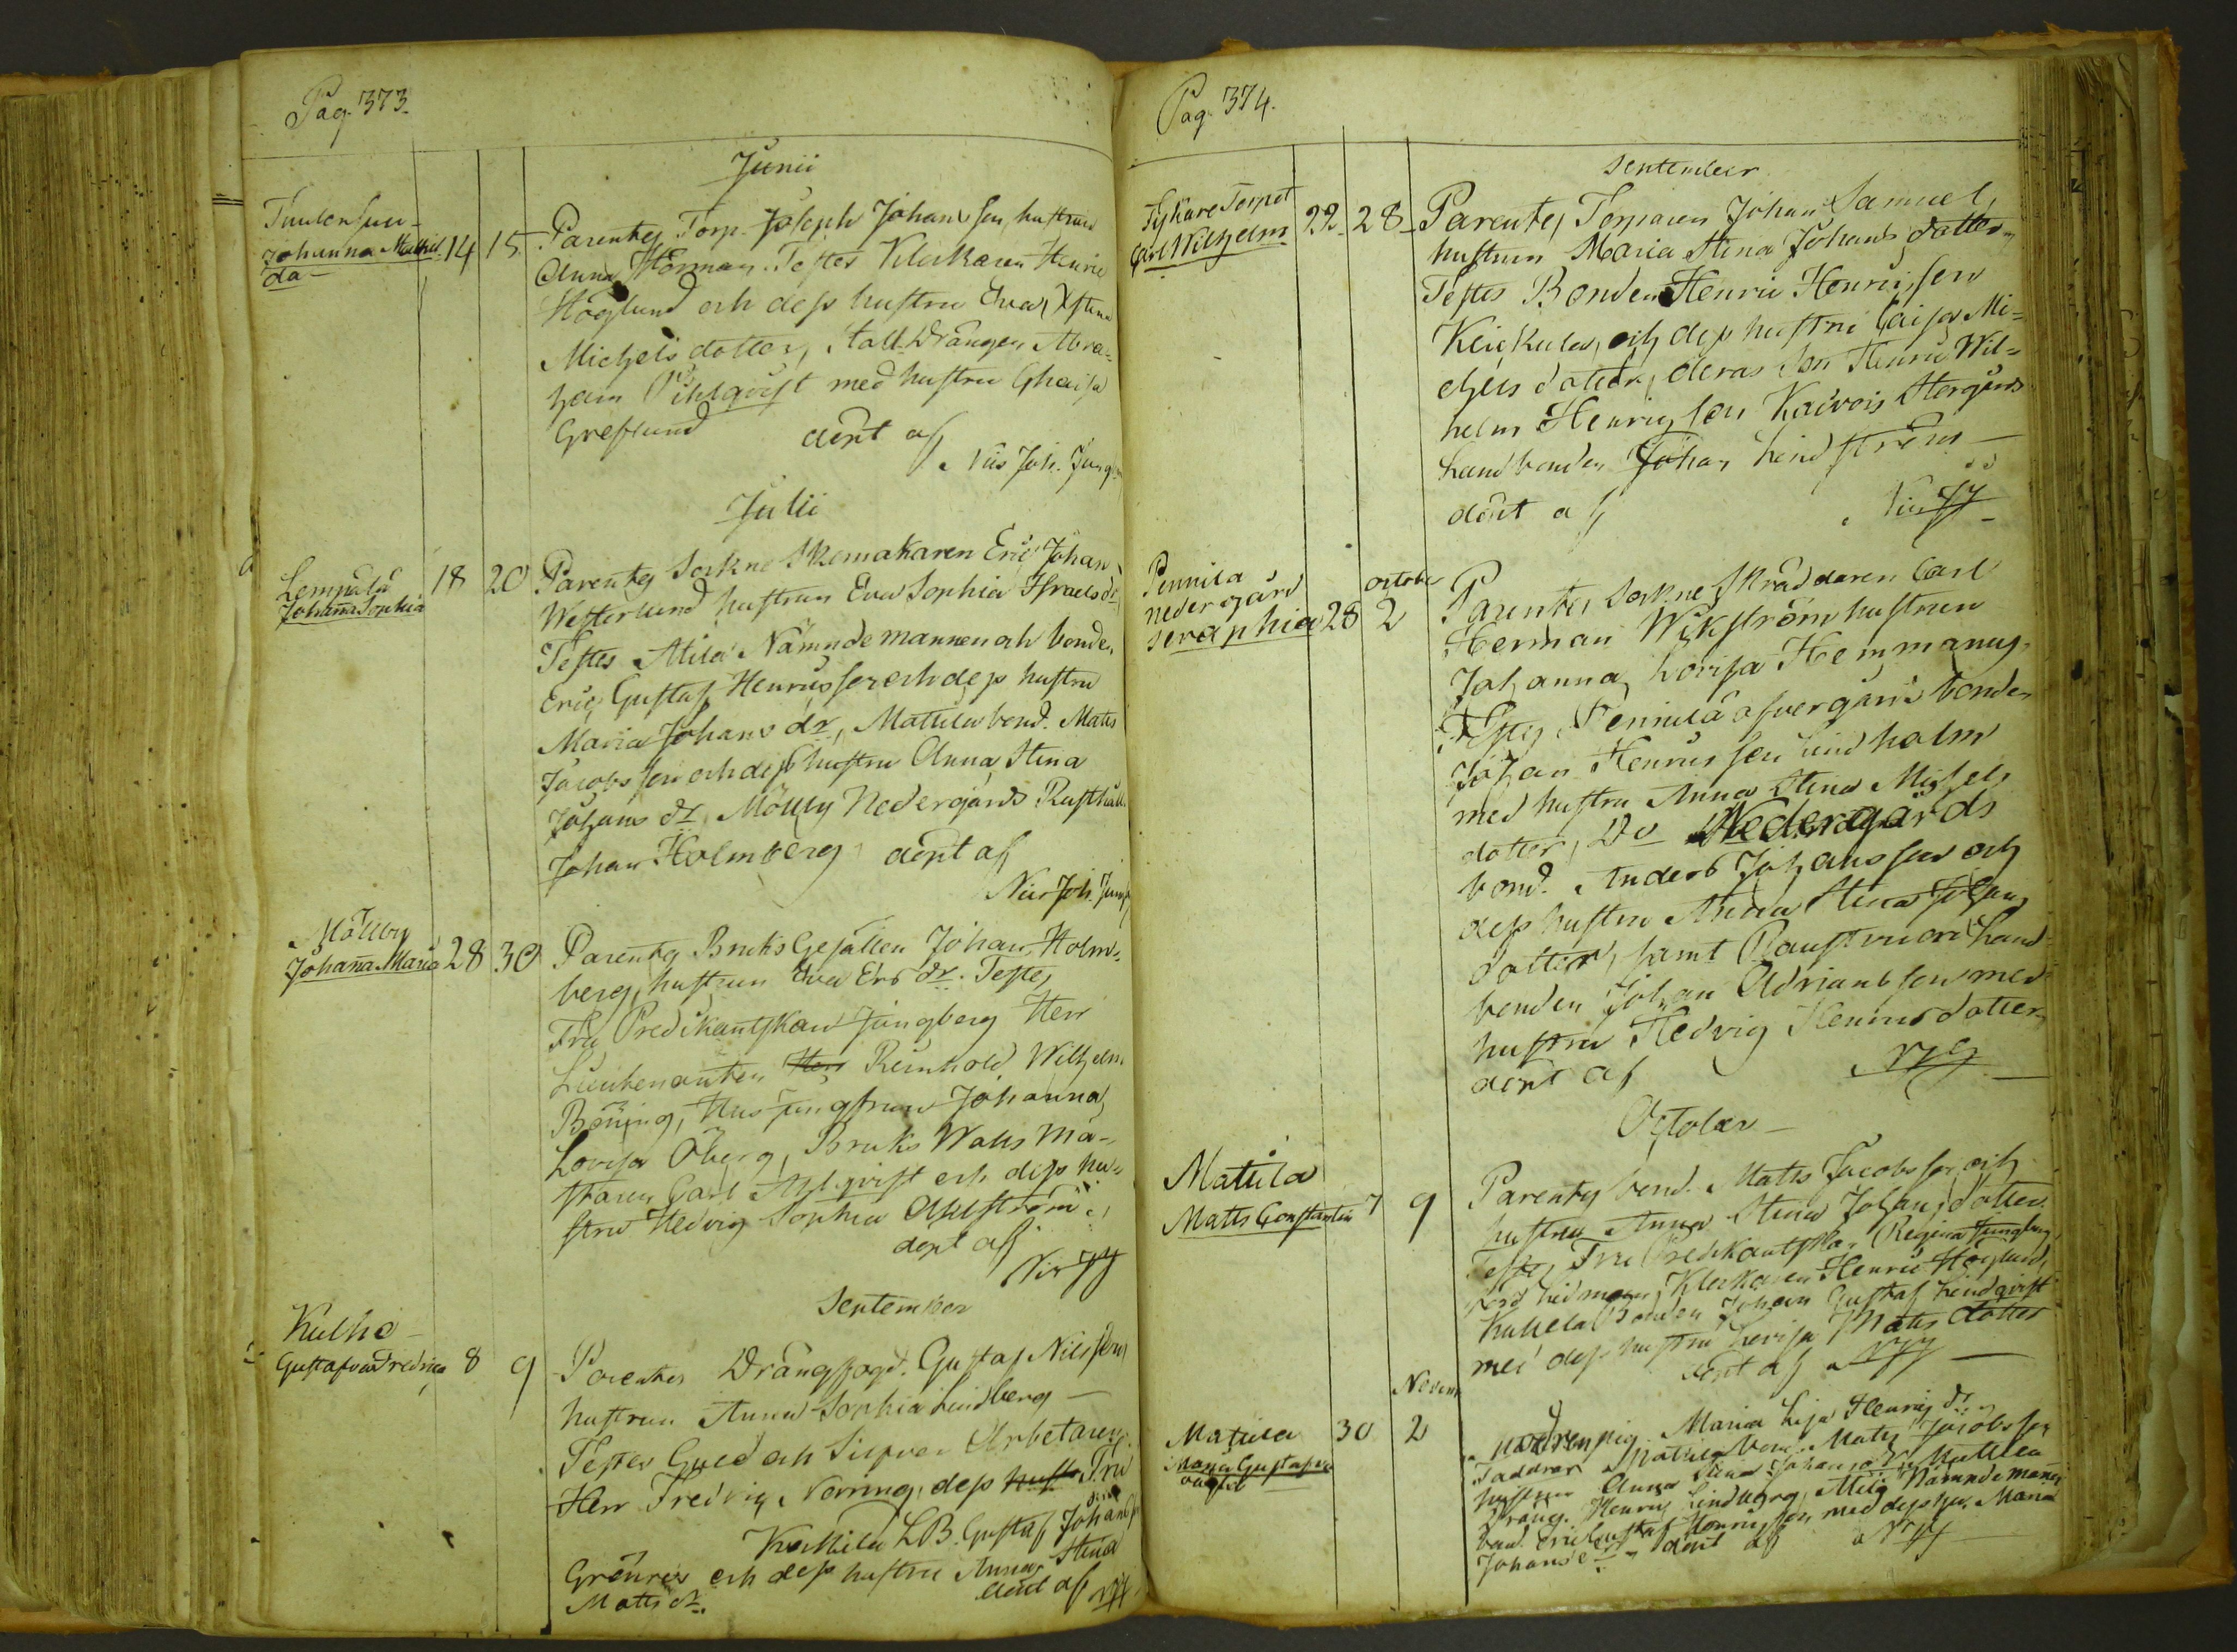 Pag. 373.
Junii
Johanna Mathil
da
14 15
Parentes Torp. Joseph Johansson, hustrun
Anna Herman. Testes Klockaren Henric
Höglund och dess hustru Eva Xstina
Michels dotter, Stall Drängen Abra-
ham Pihlqvist med hustru Chaisa
Greflund döpt af
Nils Joh. Jungberg
Julii
Lempälä
Johanna Sophia
18 20
Parentes Sockne Skomakaren Eric Johan
Westerlund hustrun Eva Sophia Israels dr
Testes Mila Nämndemannen och bonden
Eric Gustaf Henricsson och dess hustru
Maria Johans dr, Mattila bond. Matts
Jacobsson och dess hustru Anna Stina
Johans dr, Mölby Nedergårds Rusthåll.
Johan Holmberg döpt af
Nils Joh. Jungberg
Möllby
Johanna Maria
28 30
Parentes Bruks Gesällen Johan Holm-
berg, hustrun Eva Ers dr. Testes
Fru Predikantskan Jungberg Herr
Lieutenanten Herr Reinhold Wilhelm
Böning, Hus Jungfrun Johanna
Lovisa Öberg, Bruks Walls Mä-
staren Carl Ahlqvist och dess hu-
stru Hedvig Sophia Ahlström
döpt af
NJJ
September
Kulho
Gustafva Fredrica
8 9
Parentes Drängfogd. Gustaf Nilsson
hustrun Anna Sophia Lindberg
Testes Guld och Silfver Arbetaren
Herr Fredric Norring, dess hustr. Fru
Kattila LB. Gustaf Johansson
Grönros och dess hustru Anna Stina
Matts dr. döpt af NJJ
Pag. 374.
September
Tjkare Torpet
Carl Wilhelm
22 28
Parentes Torparen Johan Samuel,
hustrun Maria Stina Johans dotter
Testes Bonden Henric Henricsson
och dess hustru Caisa Mi-
chels dotter, deras Son Henric Wil-
helm Henricsson Kaivois Storgårds
Landbonden Johan Lindström
döpt af NJJ
Pennila
Nedergård
Seraphia
28
October
2
Parentes Sockne Skräddaren Carl
Herman Wikström hustrun
Johanna Lovisa Hemmanus
Testes Pennilä öfvergårds bonden
Johan Henricsson Lindholm
med hustru Anna Stina Michels
dotter, Do Nedergårds
bond. Anders Johansson och
dess hustru Anna Stina Johans
dotter, samt Land
bonden Johan Adriansson med
hustru Hedvig Henrics dotter
döpt af NJJ
October
Matila
Matts Constantin
7 9
Parentes bond. Matts Jacobsson och
hustrun Anna Stina Johans dotter
Testes Fru Predikantskan Regina Jungberg
Klockaren Henric Höglund,
Kullela Bonden Johan Gustaf Lindqvist
med dess hustru Lovisa Matts dotter
döpt af NJJ
Matila
Maria Gustafva
oägta
30
Novem
2
Moder pig. Maria Lisa Henrics dr
Faddrar Matila bond. Matts Jacobsson
hustrun Anna Stina Johans dr Mattila
Dräng. Henric Lindberg, Mila Nämndeman
bond. Eric Gustaf Henricsson med dess hu. Maria
Johans dr döpt af NJJ